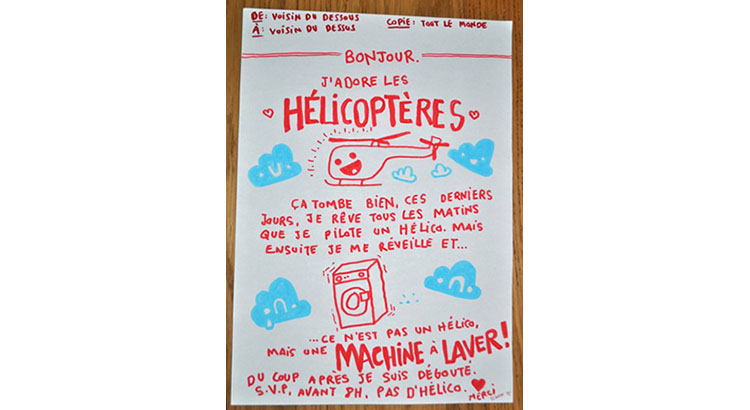 DE: VOISIN DU DESSOUS
COPIE: TOUT LE MONDE
À: VOISIN DU DESSUS
BONJOUR.
J'ADORE LES
HÉLICOPTÈRES
ÇA TOMBE BIEN, CES DERNIERS
JOURS, JE RÊVE TOUS LES MATINS
QUE JE PILOTE UN HÉLICO. MAIS
ENSUITE JE ME RÉVEILLE ET...
...CE N'EST PAS UN HÉLICO,
MAIS UNE MACHINE À LAVER!
DU COUP APRÈS JE SUIS DÉGOUTÉ.
S.V.P, AVANT 8H, PAS D'HÉLICO.
MERCI